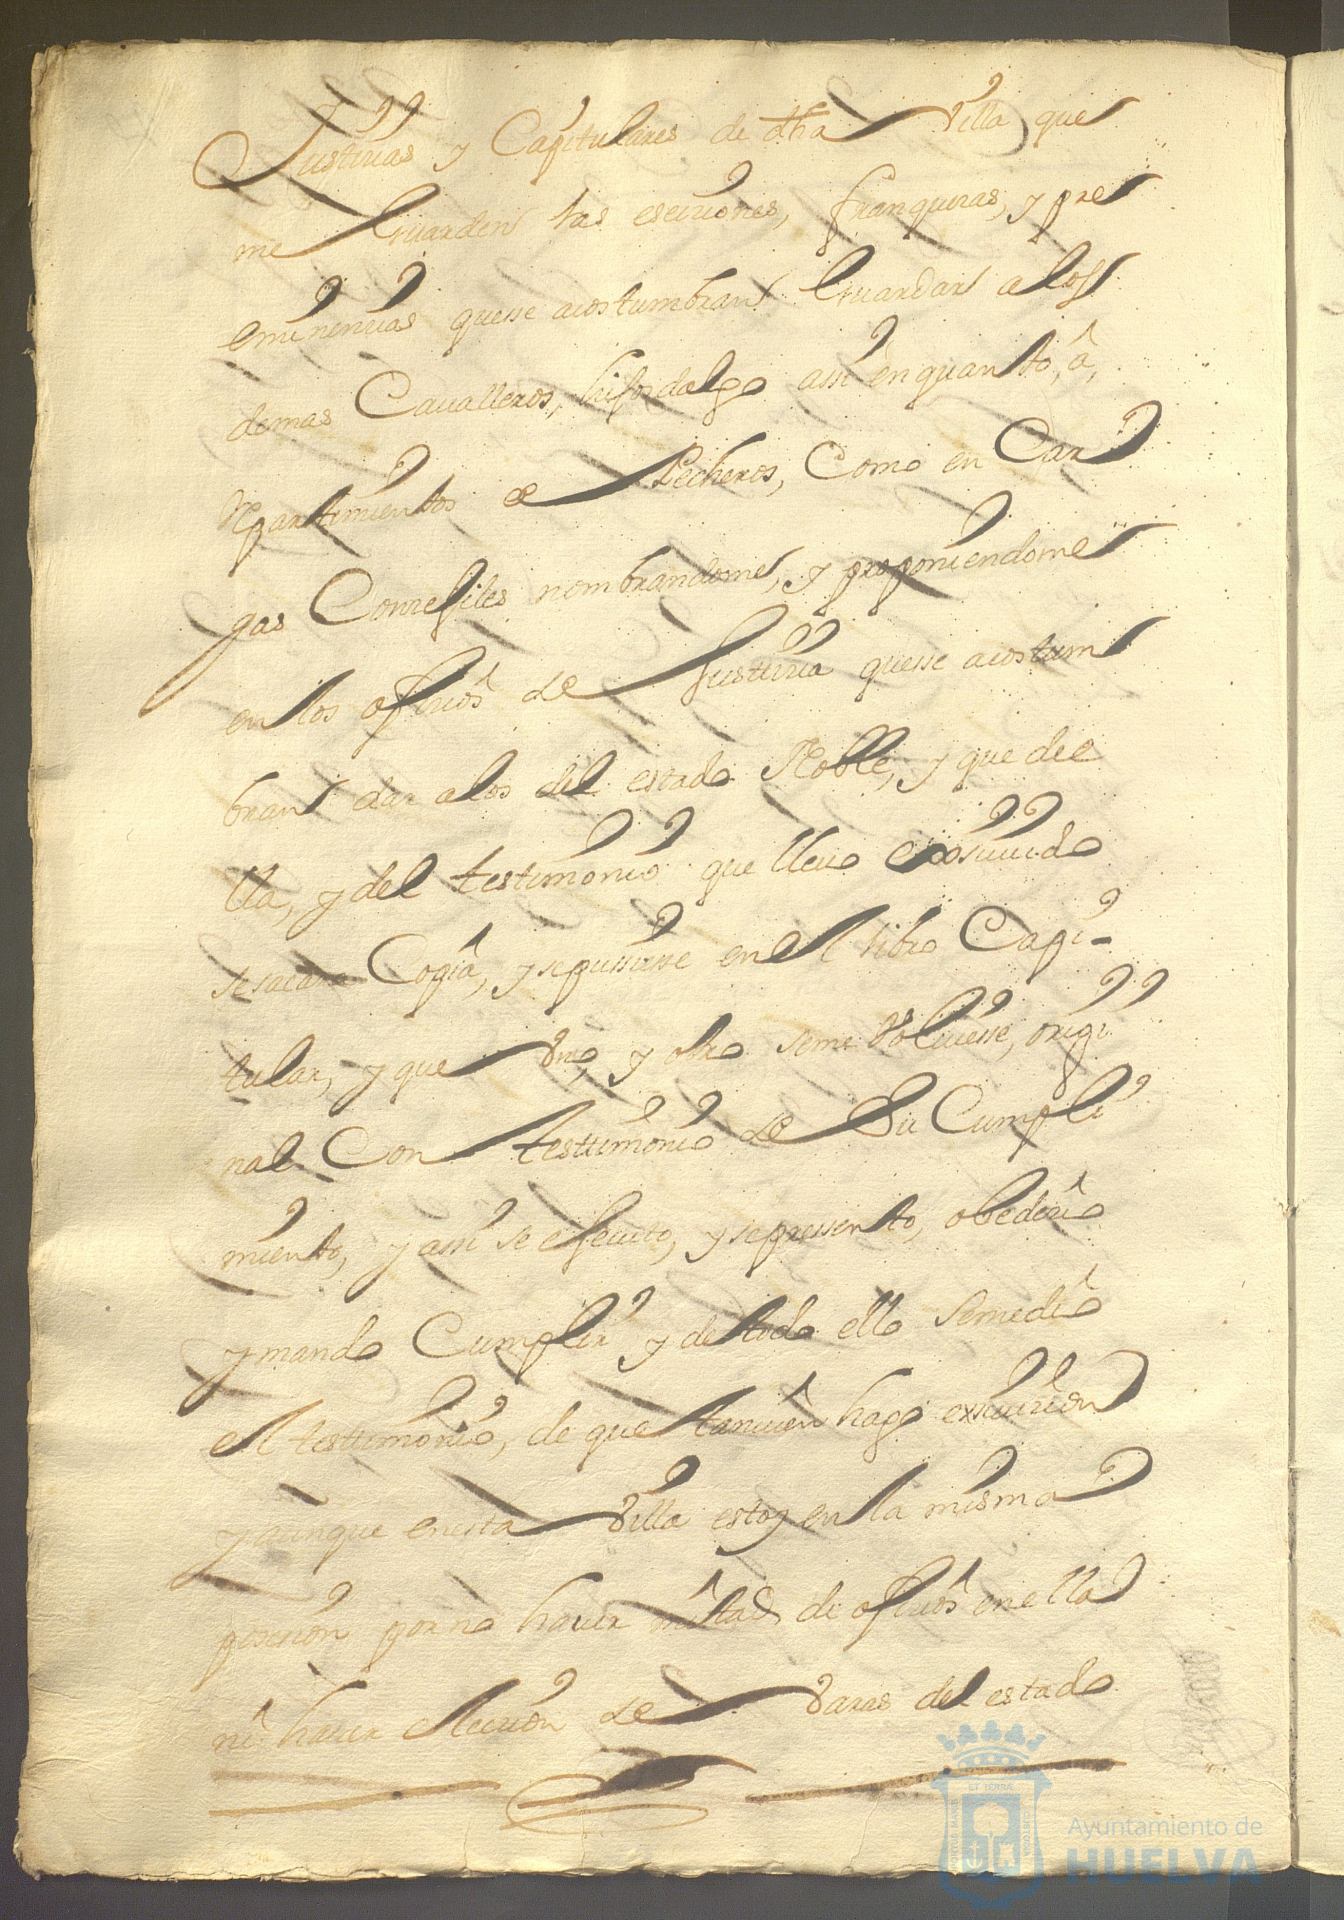 Justicias y Capitulares de dha Villa que
me Guarden las esecuiones, franqueras, y pre
eminencias quesse acostumbran Guardar a los
demas Cavalleros, hijosdalgo assi en quanto, â,
Repartimientos de Pecheros, Como en Car
gas Consejiles nombrandome, y proponiendome
en los oficios de Justicia quesse acostum
bran dar a los del estado Noble, y que de e
lla, y del testimonio que lleuo exsiuido
se sacara Copia, y se pussiesse en el libro Capi-
tular, y que Vno, y otro seme Voluiesse, origi
nal Con testimonio de Su Cumpli
miento, y assi se efecuto, y se pressento, obedecio
y mando Cumplir y de todo ello semedio
el testimonio, de que tanuien hago exsiuicion
y aunque en esta Villa estoy en la misma
posecion por no hauer mitad de oficios en ella
ni hauer eleccion de Varas del estado
Ayuntamiento de
HUELVA